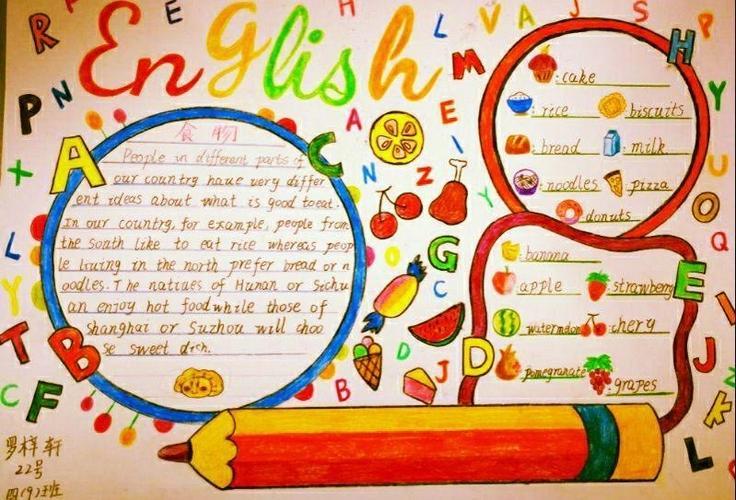 English
食物
People in different parts of
our country have very differ
ent ideas about what is good to eat.
In our country, for example, people from
the south like to eat rice whereas peop
le living in the north prefer bread or n
oodles. The natives of Hunan or Sichu
an enjoy hot food while those of
Shanghai or Suzhou will choo
se sweet dich.
:cake
:rice
:biscuits
:bread
:milk
:noodles
:pizza
:donuts
:banana
:apple
:strawberry
:watermelon
:chery
:pomegranate
:grapes
A
B
C
D
E
F
G
H
22号
四(9)班